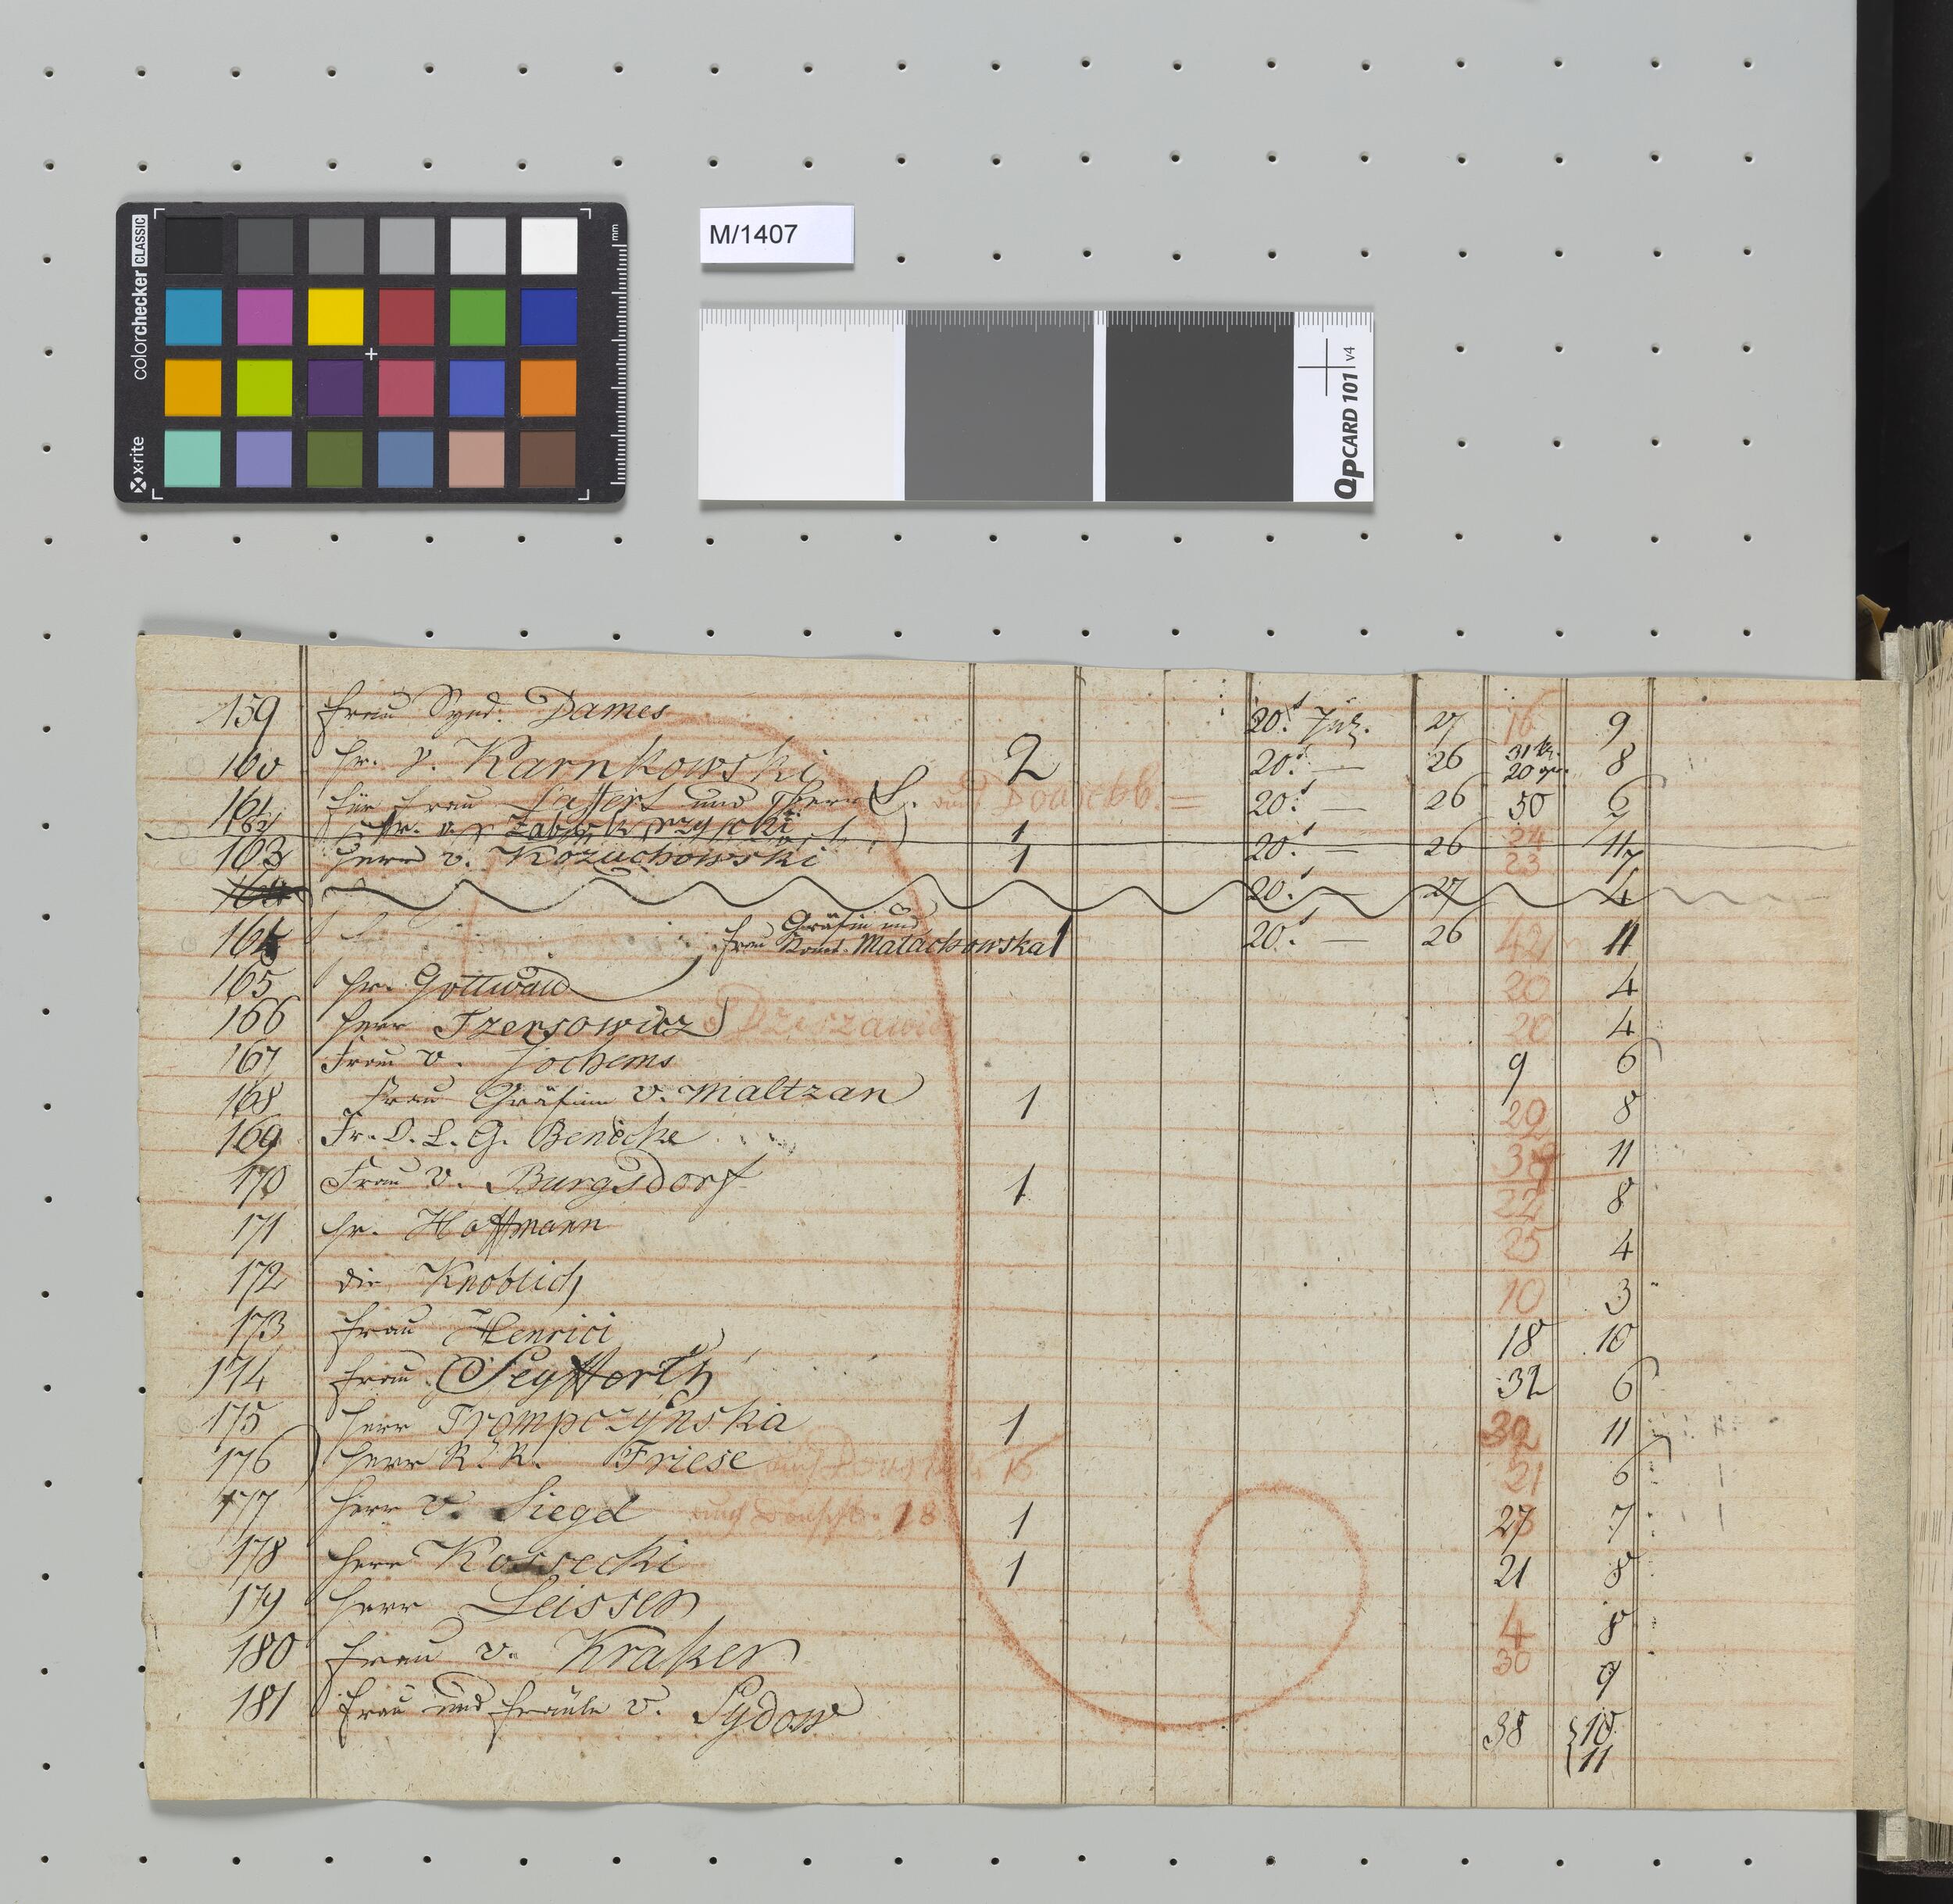 colorchecker CLASSIC
x-rite
mm
M/1407
QPCARD 101 v4
159 Frau Synd. Dames 20. Jul. 27 16 9
160 Hr. v. Karnkowski 2 20. — 26 31 20 8
161 für Frau und Herr L. 20. — 26 50 6
162 Hr. v. 1 24
163 Herr v. Kozuchowski 1 20. — 26 23 11 7
20. — 27 4
164 Frau Gräfin und Malachowska 1 20. — 26 42 11
165 Hr. Gottwald 20 4
166 Herr 20 4
167 Frau v. Jochems 9 6
168 Frau Gräfinn v. Maltzan 1 29 8
169 Fr. O. L. G. Benecke 11
170 Frau v. Burgsdorf 1 22 8
171 Hr. Hoffmann 25 4
172 die Knoblich 10 3
173 Frau Henrici 18 10
174 Frau Seyfforth 32 6
175 Herr Trompczynska 1 39 11
176 Herr R. R. Friese 21 6
177 Herr v. Siegel 18 1 27 7
178 Herr Kossecki 1 21 8
179 Herr Leisser 4 8
180 Frau v. Kraker 30 9
181 Frau und Fräule v. Sydow 38 10
11